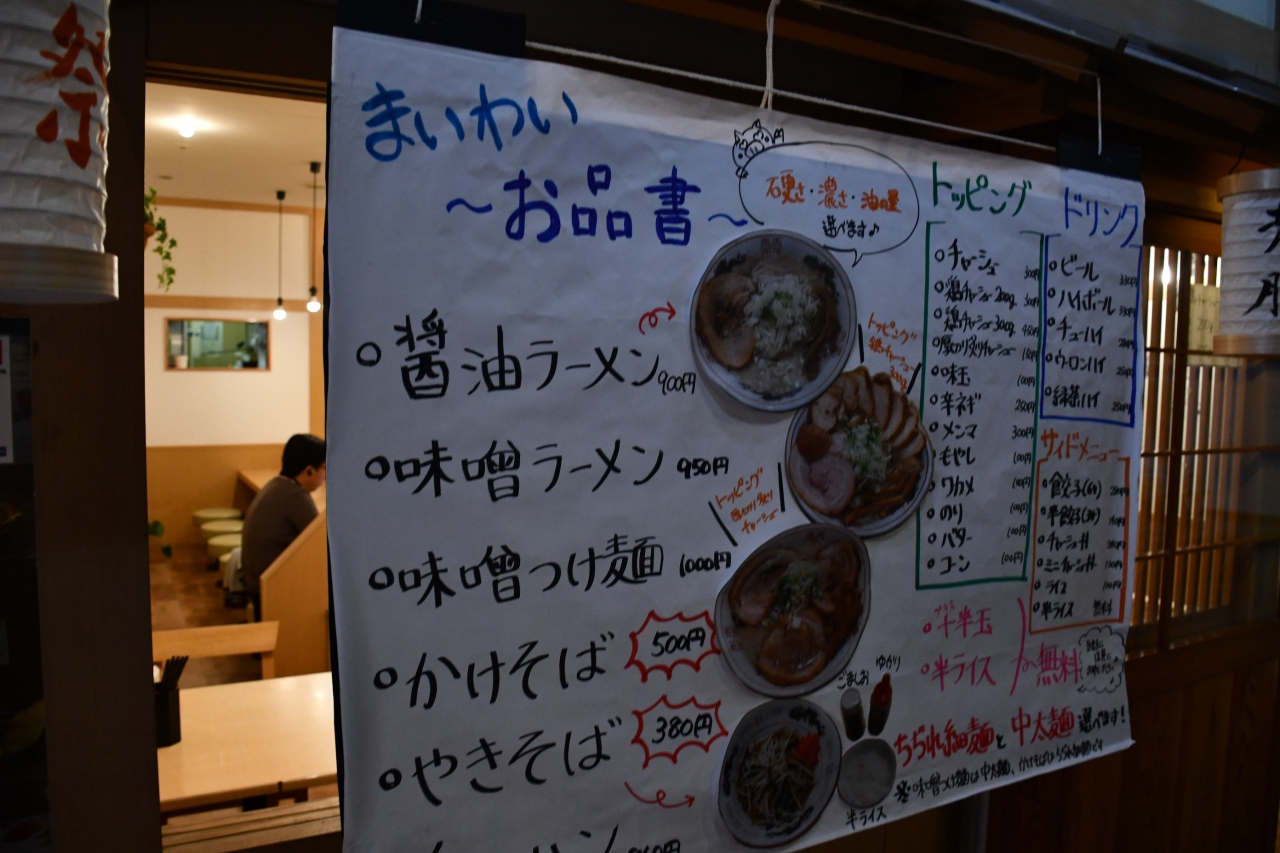 祭
まいわい
〜お品書〜
硬さ・濃さ・油の量
選べます♪
醤油ラーメン 900円
味噌ラーメン 950円
味噌つけ麺 1000円
かけそば 500円
やきそば 380円
トッピング
鶏チャーシュー
300g
トッピング
厚切り炙り
チャーシュー
トッピング
チャーシュー 300円
鶏チャーシュー200g
鶏チャーシュー300g
厚切り炙りチャーシュー
味玉 100円
辛ネギ 250円
メンマ 300円
もやし 100円
ワカメ 100円
のり 100円
バター 100円
コーン 100円
ドリンク
ビール
ハイボール
チューハイ
ウーロンハイ
緑茶ハイ
サイドメニュー
餃子(6ヶ)
半餃子(3ヶ)
チャーシュー丼
ミニチャーシュー丼
ライス
半ライス 無料
プラス
+半玉
半ライス
無料
ごましお
ゆかり
半ライス
ちぢれ細麺と中太麺選べます!
※味噌つけ麺は中太麺、かけそばはちぢれ細麺です